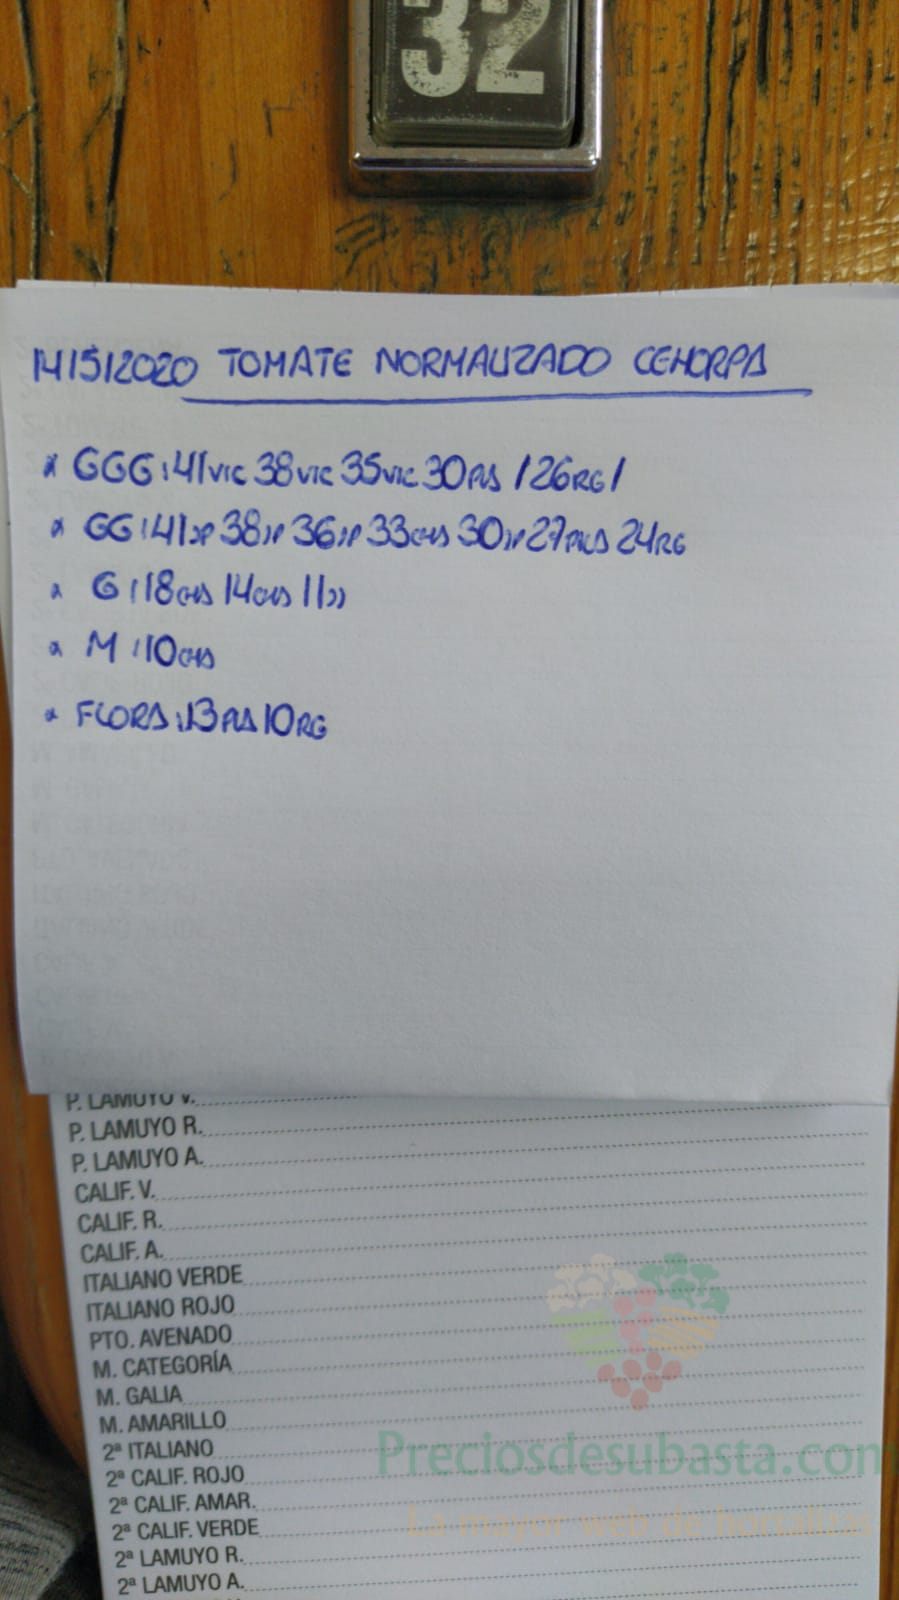 32
14/5/2020 TOMATE NORMALIZADO CEHORPA
* GGG: 41 VIC 38 VIC 35 VIC 30 PLS / 26 RG /
* GG: 41 >P 38 >P 36 >P 33 CHS 30 >P 27 PLS 24 RG
* G: 18 CHS 14 CHS 11 >>
* M: 10 CHS
* FLORA: 13 PLS 10 RG
P. LAMUYO V.
P. LAMUYO R.
P. LAMUYO A.
CALIF. V.
CALIF. R.
CALIF. A.
ITALIANO VERDE
ITALIANO ROJO
PTO. AVENADO
M. CATEGORÍA
M. GALIA
M. AMARILLO
2ª ITALIANO
2ª CALIF. ROJO
2ª CALIF. AMAR.
2ª CALIF. VERDE
2ª LAMUYO R.
2ª LAMUYO A.
Preciosdesubasta.com
La mayor web de hortalizas